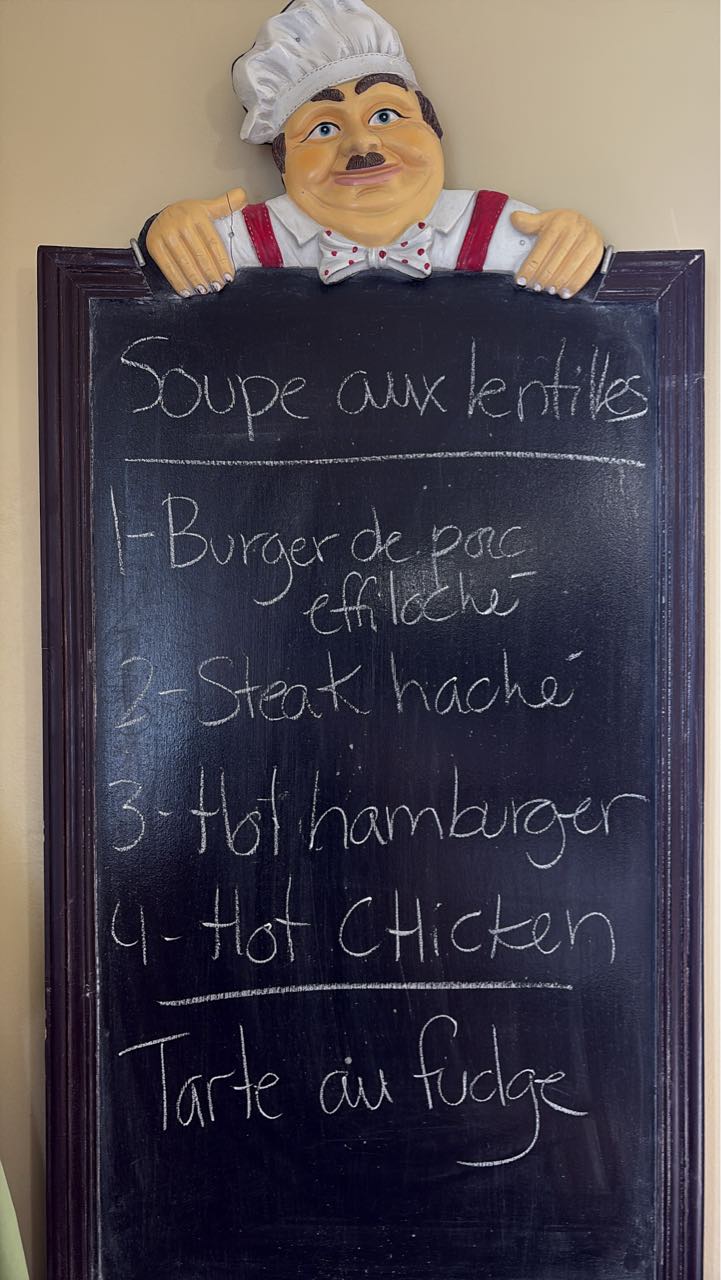 Soupe aux lentilles
1-Burger de porc
effiloché
2-Steak haché
3-Hot hamburger
4-Hot CHicken
Tarte au fudge